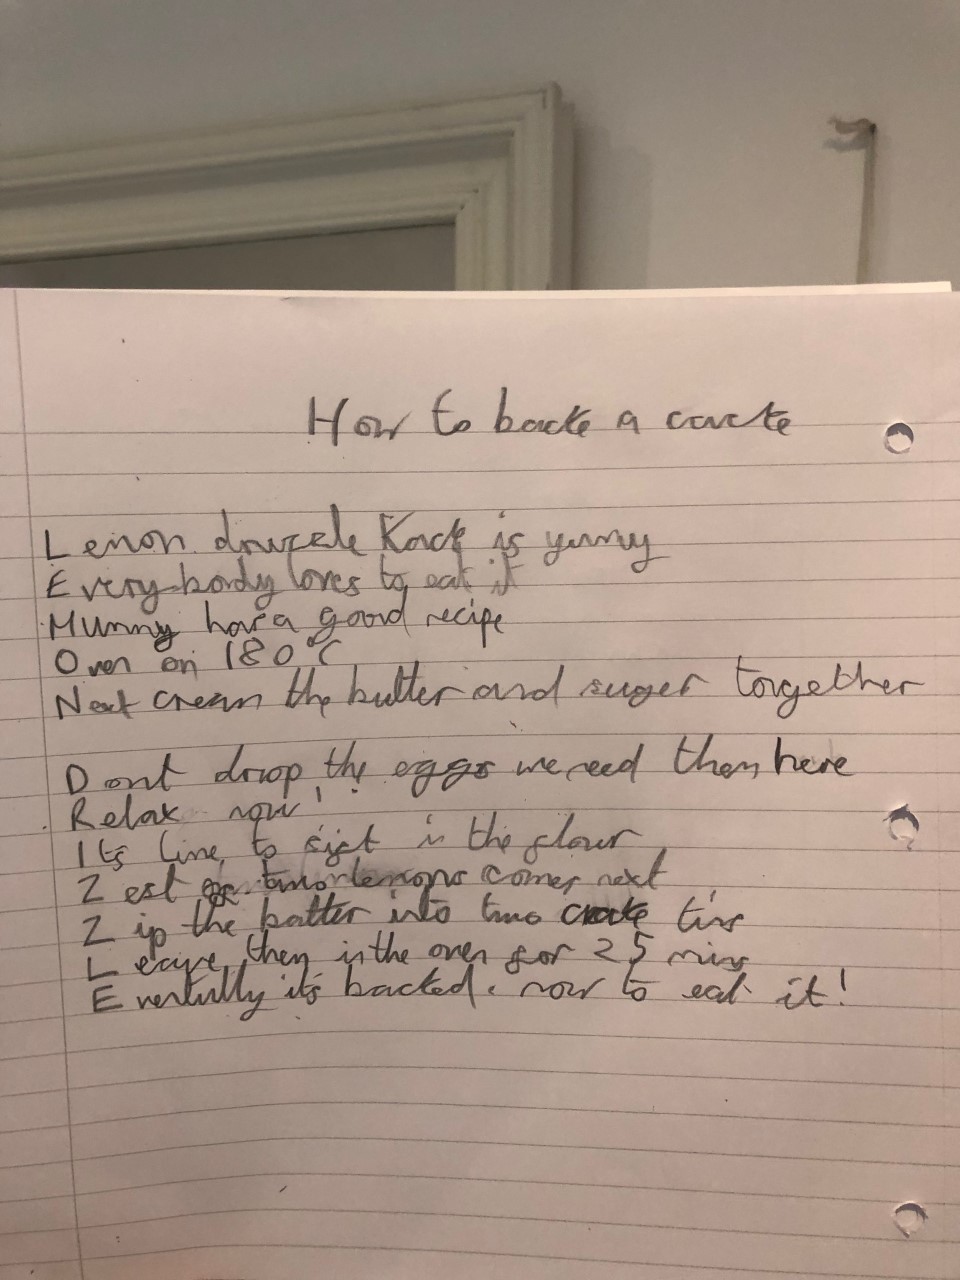 How to backe a cacke
Lemon drizzle Kack is yummy
Everybody loves to eat it
Mummy has a good recipe
Oven on 180°C
Next cream the butter and suger together
Dont drop the eggs we need them here
Relax now!
Its time to sift in the flour
Zest of two lemons comes next
Zip the batter into two cacke tins
Leave them in the oven for 25 mins
Eventully it's backed. now to eat it!